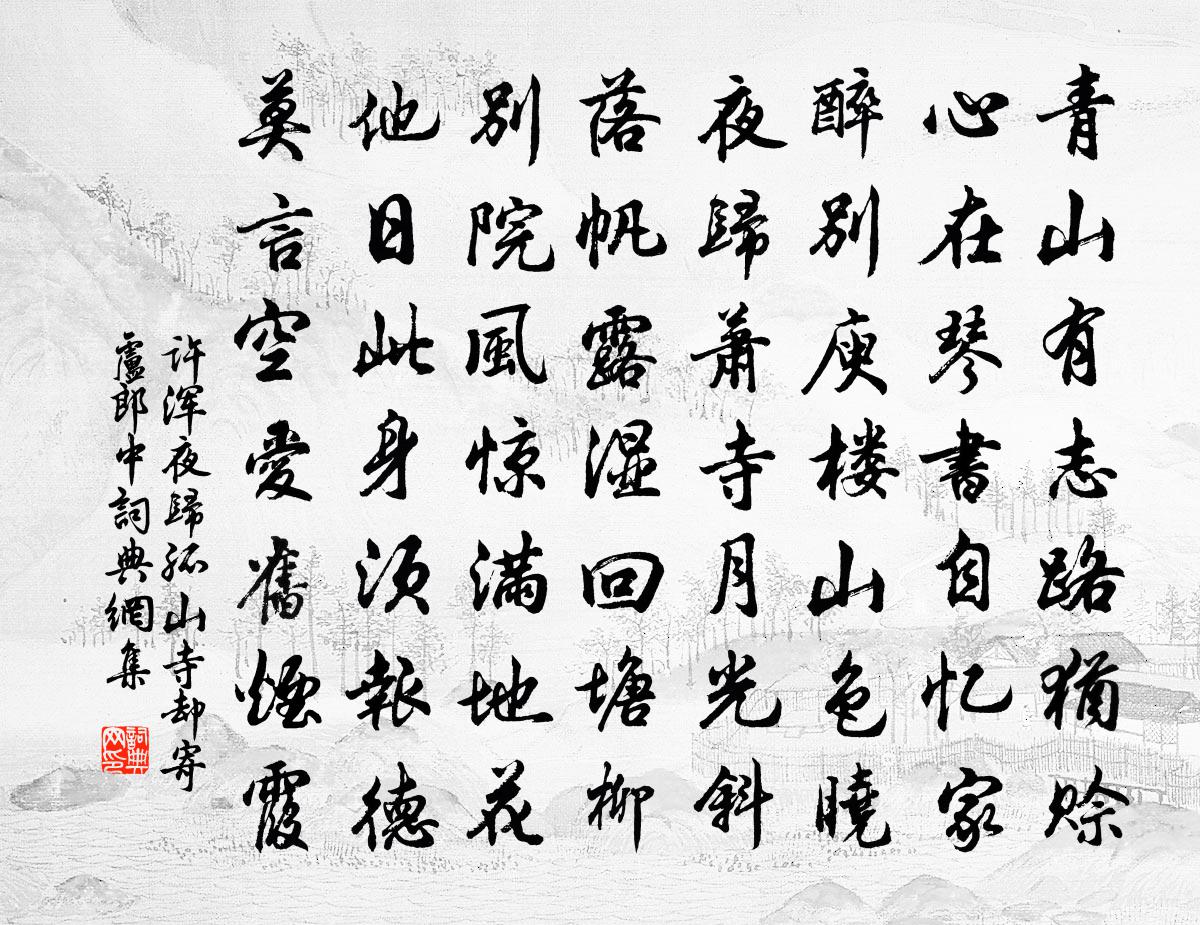 青山有志路猶賒
心在琴書自忆家
醉別庾楼山色曉
夜歸萧寺月光斜
落帆露湿回塘柳
別院風惊满地花
他日此身须報德
莫言空愛舊煙霞
许浑夜歸孤山寺却寄
盧郎中詞典網集
詞典
网印